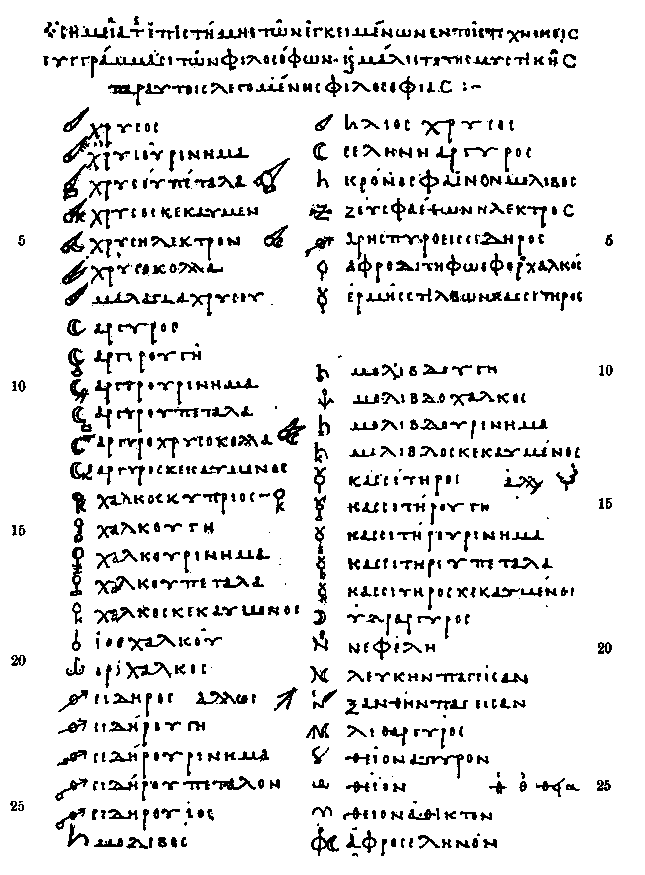 Σημεῖα τῆς ἐπιστήμης τῶν ἐγκειμένων ἐν τοῖς τεχνικοῖς
συγγράμμασι τῶν φιλοσόφων· καὶ μάλιστα τῆς μυστικῆς
παρ αυτοις λεγομένης φιλοσοφίας :-
χρυσος
χρυσοῦ ρινημα
χρυσοῦ πέταλα
χρυσος κεκαυμεν
5 χρυσηλεκτρον
χρυσοκολλα
μαλαγμα χρυσου
αργυρος
αργυρου γη
10 αργυρου ρινημα
αργυρου πεταλα
αργυροχρυσοκολλα
αργυρος κεκαυμενος
χαλκος κυπριος
15 χαλκου γη
χαλκου ρινημα
χαλκου πεταλα
χαλκος κεκαυμενος
ἰος χαλκοῦ
20 ορίχαλκος
σίδηρος αλλως
σιδήρου γη
σιδήρου ρινημα
σιδήρου πεταλον
25 σιδήρου ἰος
μολιβος
ηλιος χρυσος
σεληνη αργυρος
κρόνος φαίνων μόλιβος
ζευς φαέθων ηλεκτρος
5 άρης πυρόεις σιδηρος
ἀφροδίτη φωσφορος χαλκός
ἑρμῆς στίλβων κασσίτηρος
10 μολίβδου γη
μολιβδοχαλκος
μολιβδου ρινημα
μολιβδος κεκαυμένος
κασσίτηρος
15 κασσιτηρου γη
κασσιτηρου ρινημα
κασσιτηρου πεταλα
κασσιτηρος κεκαυμενος
ὑδραργυρος
20 νεφέλη
λευκην παγεισαν
ξανθην παγεισαν
λιθαργυρος
θειον απυρον
25 θεῖον
θειον άθικτον
ἀφροσεληνον